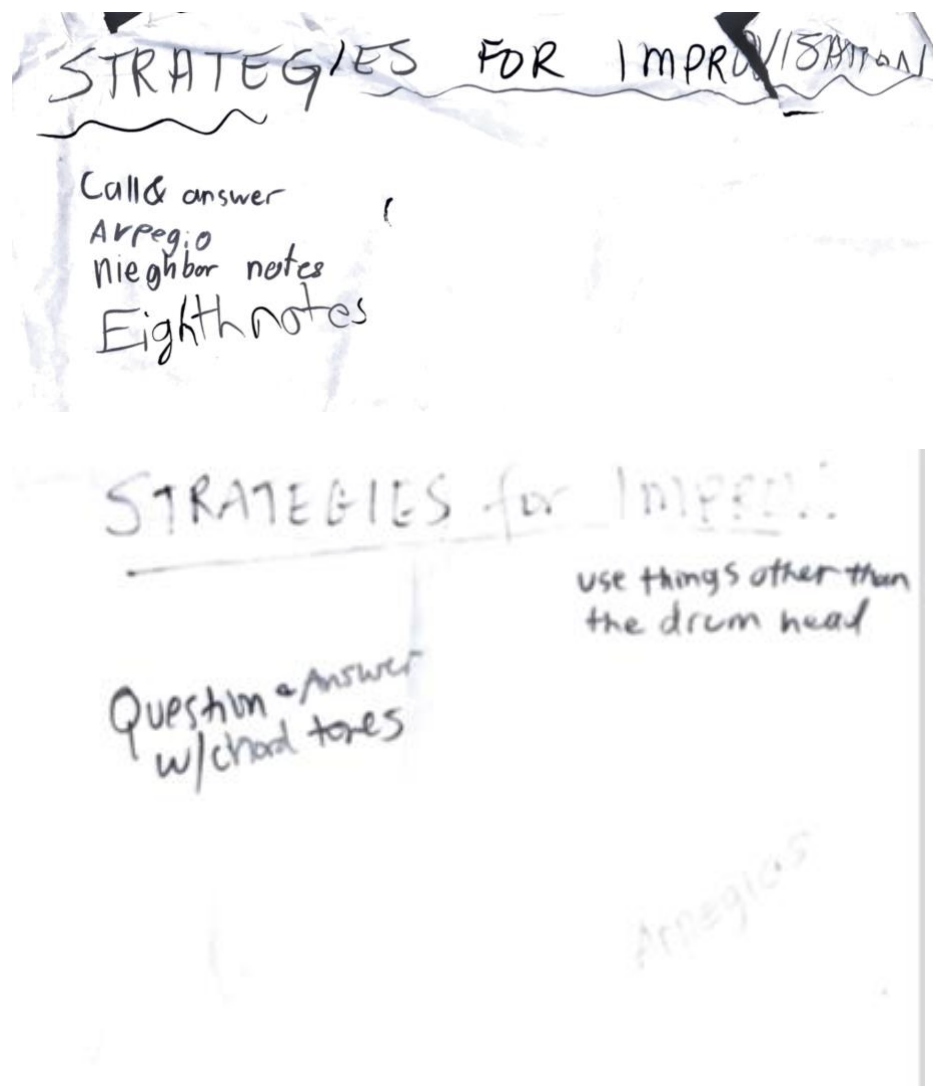 STRATEGIES FOR IMPROVISATION
Call & answer
Arpegio
Nieghbor notes
Eighth notes
STRATEGIES for IMPRO
use things other than
the drum head
Question & Answer
w/chord tones
Arpegios